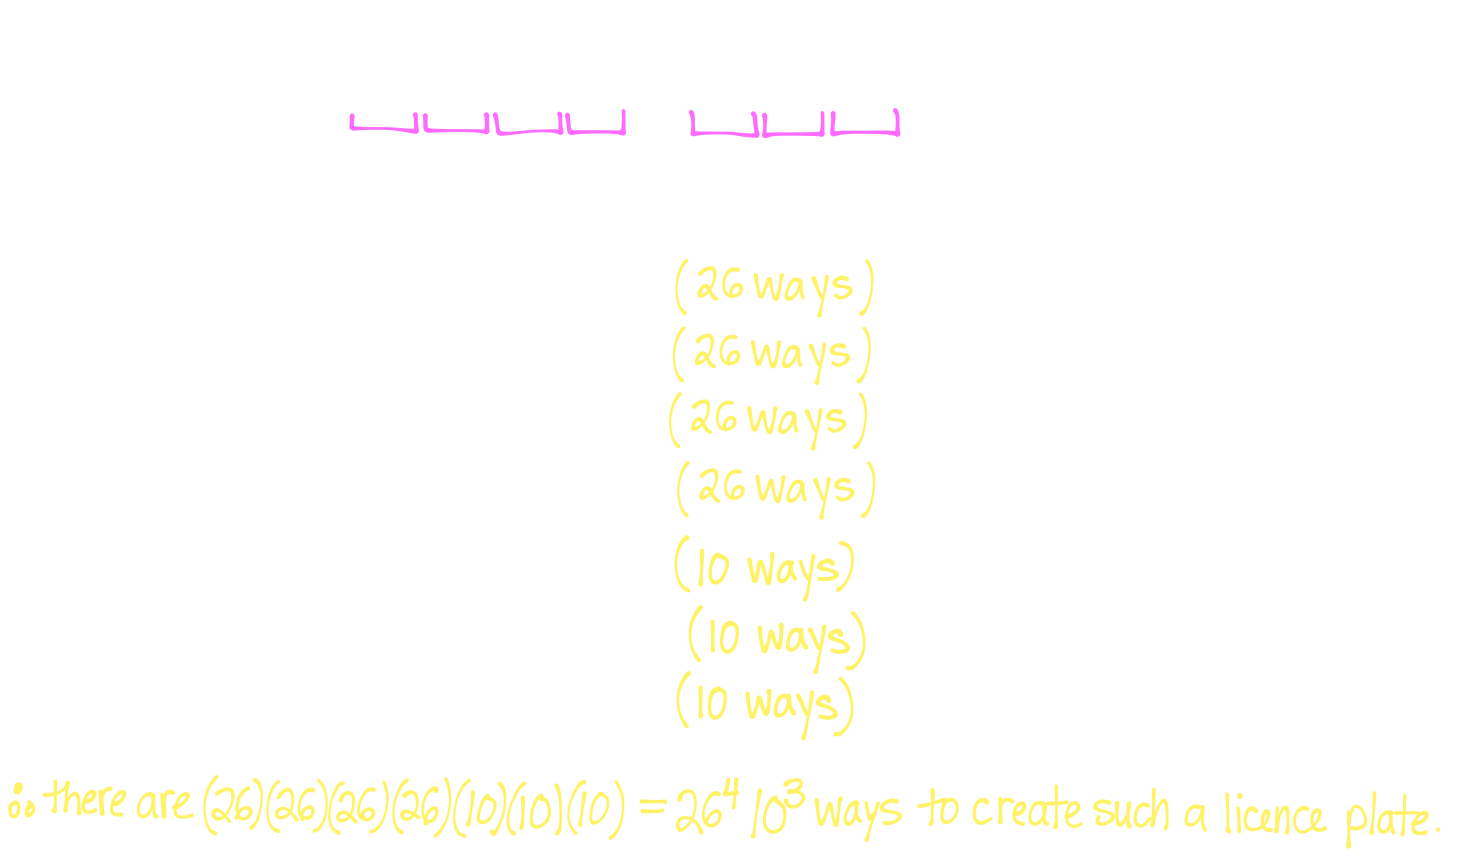 (26 ways)
(26 ways)
(26 ways)
(26 ways)
(10 ways)
(10 ways)
(10 ways)
∴ there are (26)(26)(26)(26)(10)(10)(10) = 26⁴ 10³ ways to create such a licence plate.